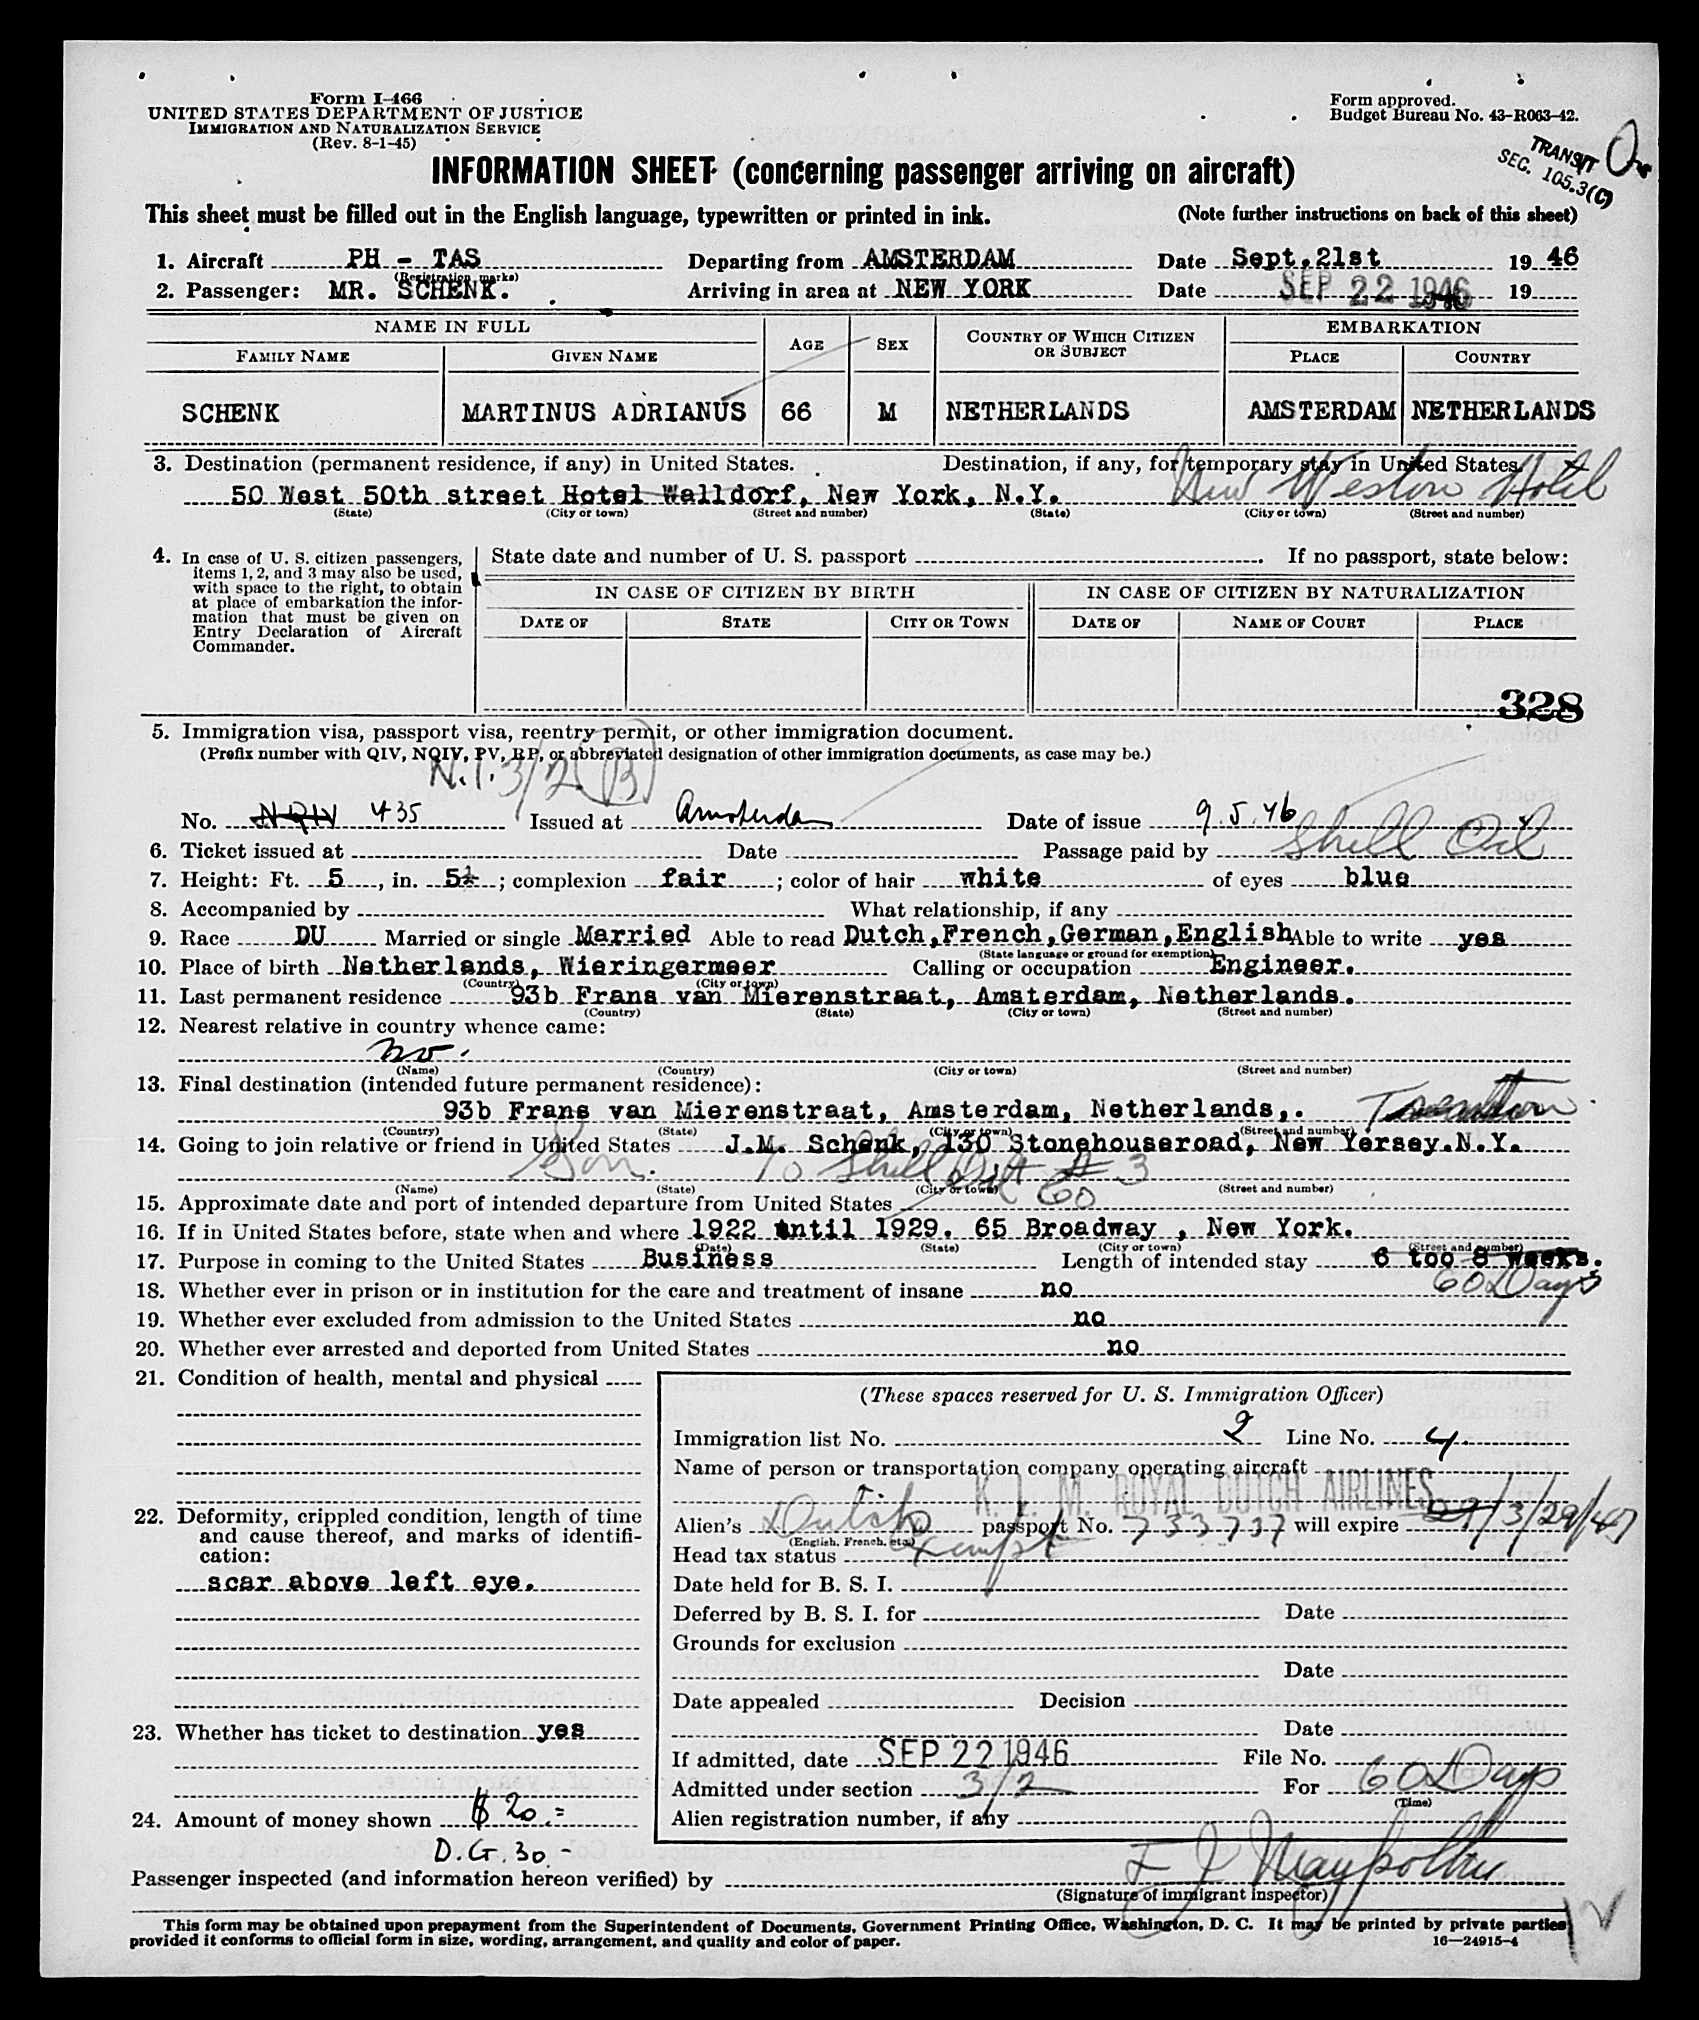 Form I-466
UNITED STATES DEPARTMENT OF JUSTICE
IMMIGRATION AND NATURALIZATION SERVICE
(Rev. 8-1-45)
Form approved.
Budget Bureau No. 43-R063-42.
TRANSIT
SEC. 105.3(C)
INFORMATION SHEET (concerning passenger arriving on aircraft)
This sheet must be filled out in the English language, typewritten or printed in ink. (Note further instructions on back of this sheet)
1. Aircraft PH - TAS Departing from AMSTERDAM Date Sept. 21st 19 46
(Registration marks)
2. Passenger: MR. SCHENK. Arriving in area at NEW YORK Date SEP 22 1946 19
NAME IN FULL AGE SEX COUNTRY OF WHICH CITIZEN OR SUBJECT EMBARKATION
FAMILY NAME GIVEN NAME PLACE COUNTRY
SCHENK MARTINUS ADRIANUS 66 M NETHERLANDS AMSTERDAM NETHERLANDS
3. Destination (permanent residence, if any) in United States. Destination, if any, for temporary stay in United States.
50 West 50th street Hotel Walldorf, New York, N.Y. New Weston Hotel
(State) (City or town) (Street and number) (State) (City or town) (Street and number)
4. In case of U. S. citizen passengers, items 1, 2, and 3 may also be used, with space to the right, to obtain at place of embarkation the information that must be given on Entry Declaration of Aircraft Commander.
State date and number of U. S. passport . If no passport, state below:
IN CASE OF CITIZEN BY BIRTH IN CASE OF CITIZEN BY NATURALIZATION
DATE OF STATE CITY OR TOWN DATE OF NAME OF COURT PLACE
328
5. Immigration visa, passport visa, reentry permit, or other immigration document.
(Prefix number with QIV, NQIV, PV, RP, or abbreviated designation of other immigration documents, as case may be.)
N.I. 3/2 (B)
No. NQIV 435 Issued at Amsterdam Date of issue 9.5.46
6. Ticket issued at Date Passage paid by Shell Oil
7. Height: Ft. 5, in. 5½; complexion fair; color of hair white of eyes blue
8. Accompanied by What relationship, if any
9. Race DU Married or single Married Able to read Dutch,French,German,English Able to write yes
(State language or ground for exemption)
10. Place of birth Netherlands, Wieringermeer Calling or occupation Engineer.
(Country) (City or town)
11. Last permanent residence 93b Frans van Mierenstraat, Amsterdam, Netherlands.
(Country) (State) (City or town) (Street and number)
12. Nearest relative in country whence came:
no.
(Name) (Country) (City or town) (Street and number)
13. Final destination (intended future permanent residence):
93b Frans van Mierenstraat, Amsterdam, Netherlands,.
(Country) (State) (City or town) (Street and number)
14. Going to join relative or friend in United States J.M. Schenk, 130 Stonehouseroad, New Yersey.N.Y.
Son. To Shell
(Name) (State) (City or town) (Street and number)
15. Approximate date and port of intended departure from United States 60
16. If in United States before, state when and where 1922 until 1929. 65 Broadway , New York.
(Date) (State) (City or town) (Street and number)
17. Purpose in coming to the United States Business Length of intended stay 6 too 8 weeks.
60 Days
18. Whether ever in prison or in institution for the care and treatment of insane no
19. Whether ever excluded from admission to the United States no
20. Whether ever arrested and deported from United States no
21. Condition of health, mental and physical
22. Deformity, crippled condition, length of time and cause thereof, and marks of identification:
scar above left eye.
23. Whether has ticket to destination yes
24. Amount of money shown $ 20.=
D.G. 30.-
(These spaces reserved for U. S. Immigration Officer)
Immigration list No. 2 Line No. 4.
Name of person or transportation company operating aircraft
K. L. M. ROYAL DUTCH AIRLINES
Alien's Dutch passport No. 733737 will expire 3/29/47
(English, French, etc.)
Head tax status Exempt
Date held for B. S. I.
Deferred by B. S. I. for Date
Grounds for exclusion
Date
Date appealed Decision
Date
If admitted, date SEP 22 1946 File No.
Admitted under section 3/2 For 60 Days
(Time)
Alien registration number, if any
Passenger inspected (and information hereon verified) by
(Signature of immigrant inspector)
This form may be obtained upon prepayment from the Superintendent of Documents, Government Printing Office, Washington, D. C. It may be printed by private parties
provided it conforms to official form in size, wording, arrangement, and quality and color of paper.
16—24915-4